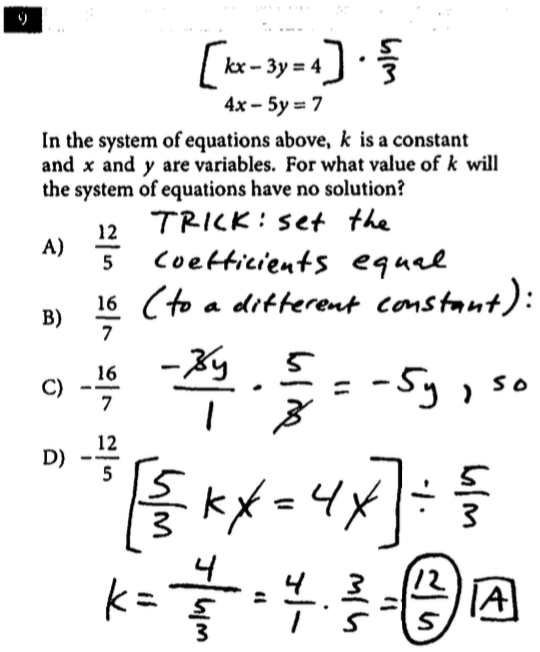 9
[kx – 3y = 4] · 5/3
4x – 5y = 7
In the system of equations above, k is a constant
and x and y are variables. For what value of k will
the system of equations have no solution?
A) 12/5
B) 16/7
C) –16/7
D) –12/5
TRICK: set the
coefficients equal
(to a different constant):
-3y/1 · 5/3 = -5y, so
[5/3 kx = 4x] ÷ 5/3
k = 4/(5/3) = 4/1 · 3/5 = 12/5 A